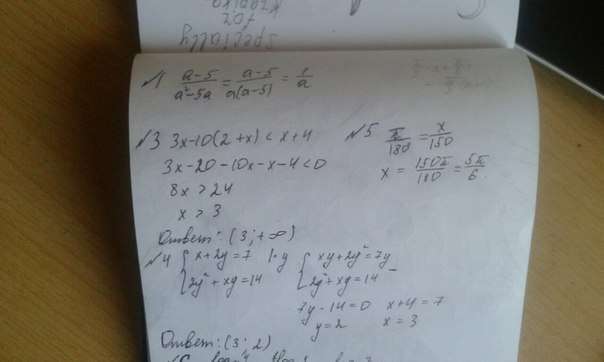 specially
for
№1 (a-5)/(a²-5a) = (a-5)/(a(a-5)) = 1/a
№3 3x-10(2+x) < x+4
3x-20-10x-x-4<0
8x > 24
x > 3
Ответ: (3; +∞)
№5 π/180 = x/150
x = 150π/180 = 5π/6
№4 { x+2y=7 |·y
2y²+xy=14
{ xy+2y²=7y
2y²+xy=14 -
7y-14=0 x+4=7
y=2 x=3
Ответ: (3; 2)